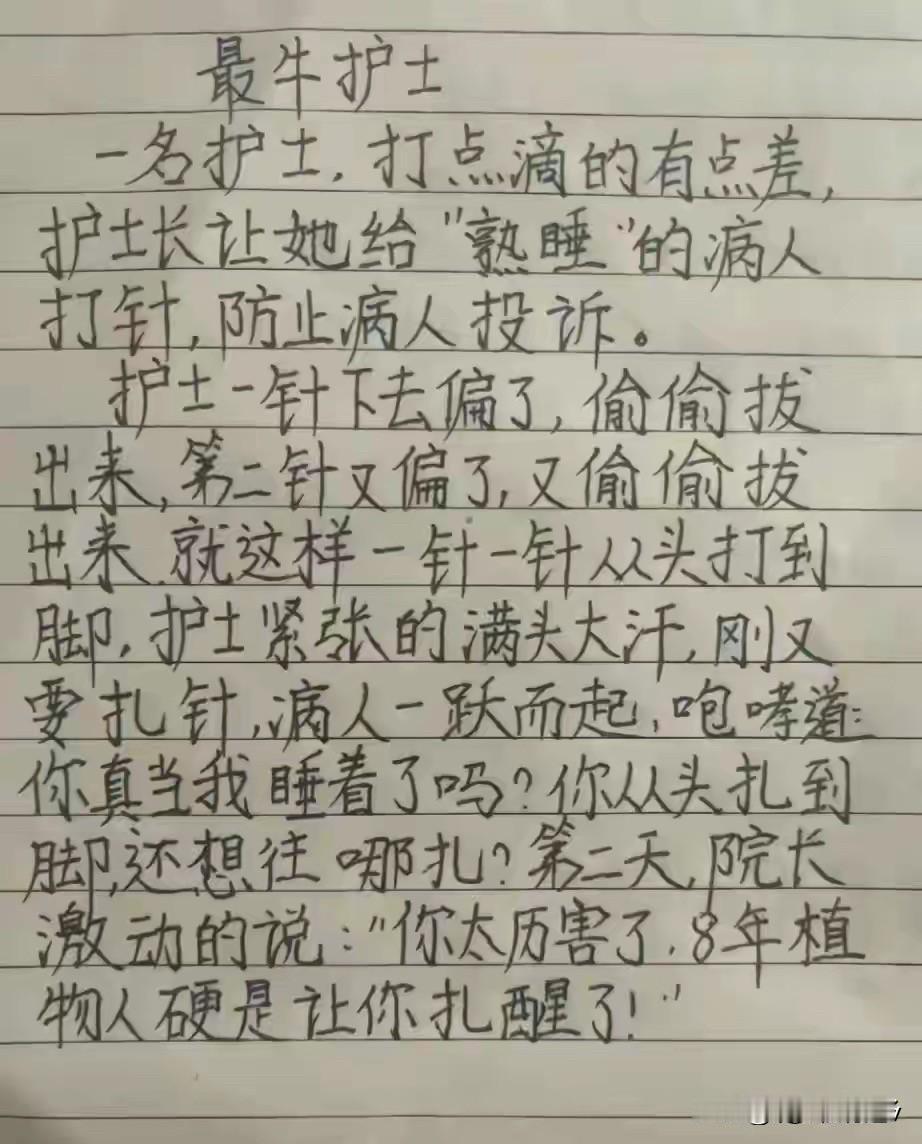 最牛护士
一名护士，打点滴的有点差，
护士长让她给"熟睡"的病人
打针，防止病人投诉。
护士一针下去偏了，偷偷拔
出来，第二针又偏了，又偷偷拔
出来，就这样一针一针从头打到
脚，护士紧张的满头大汗，刚又
要扎针，病人一跃而起，咆哮道：
你真当我睡着了吗？你从头扎到
脚，还想往哪扎？第二天，院长
激动的说："你太历害了，8年植
物人硬是让你扎醒了！"